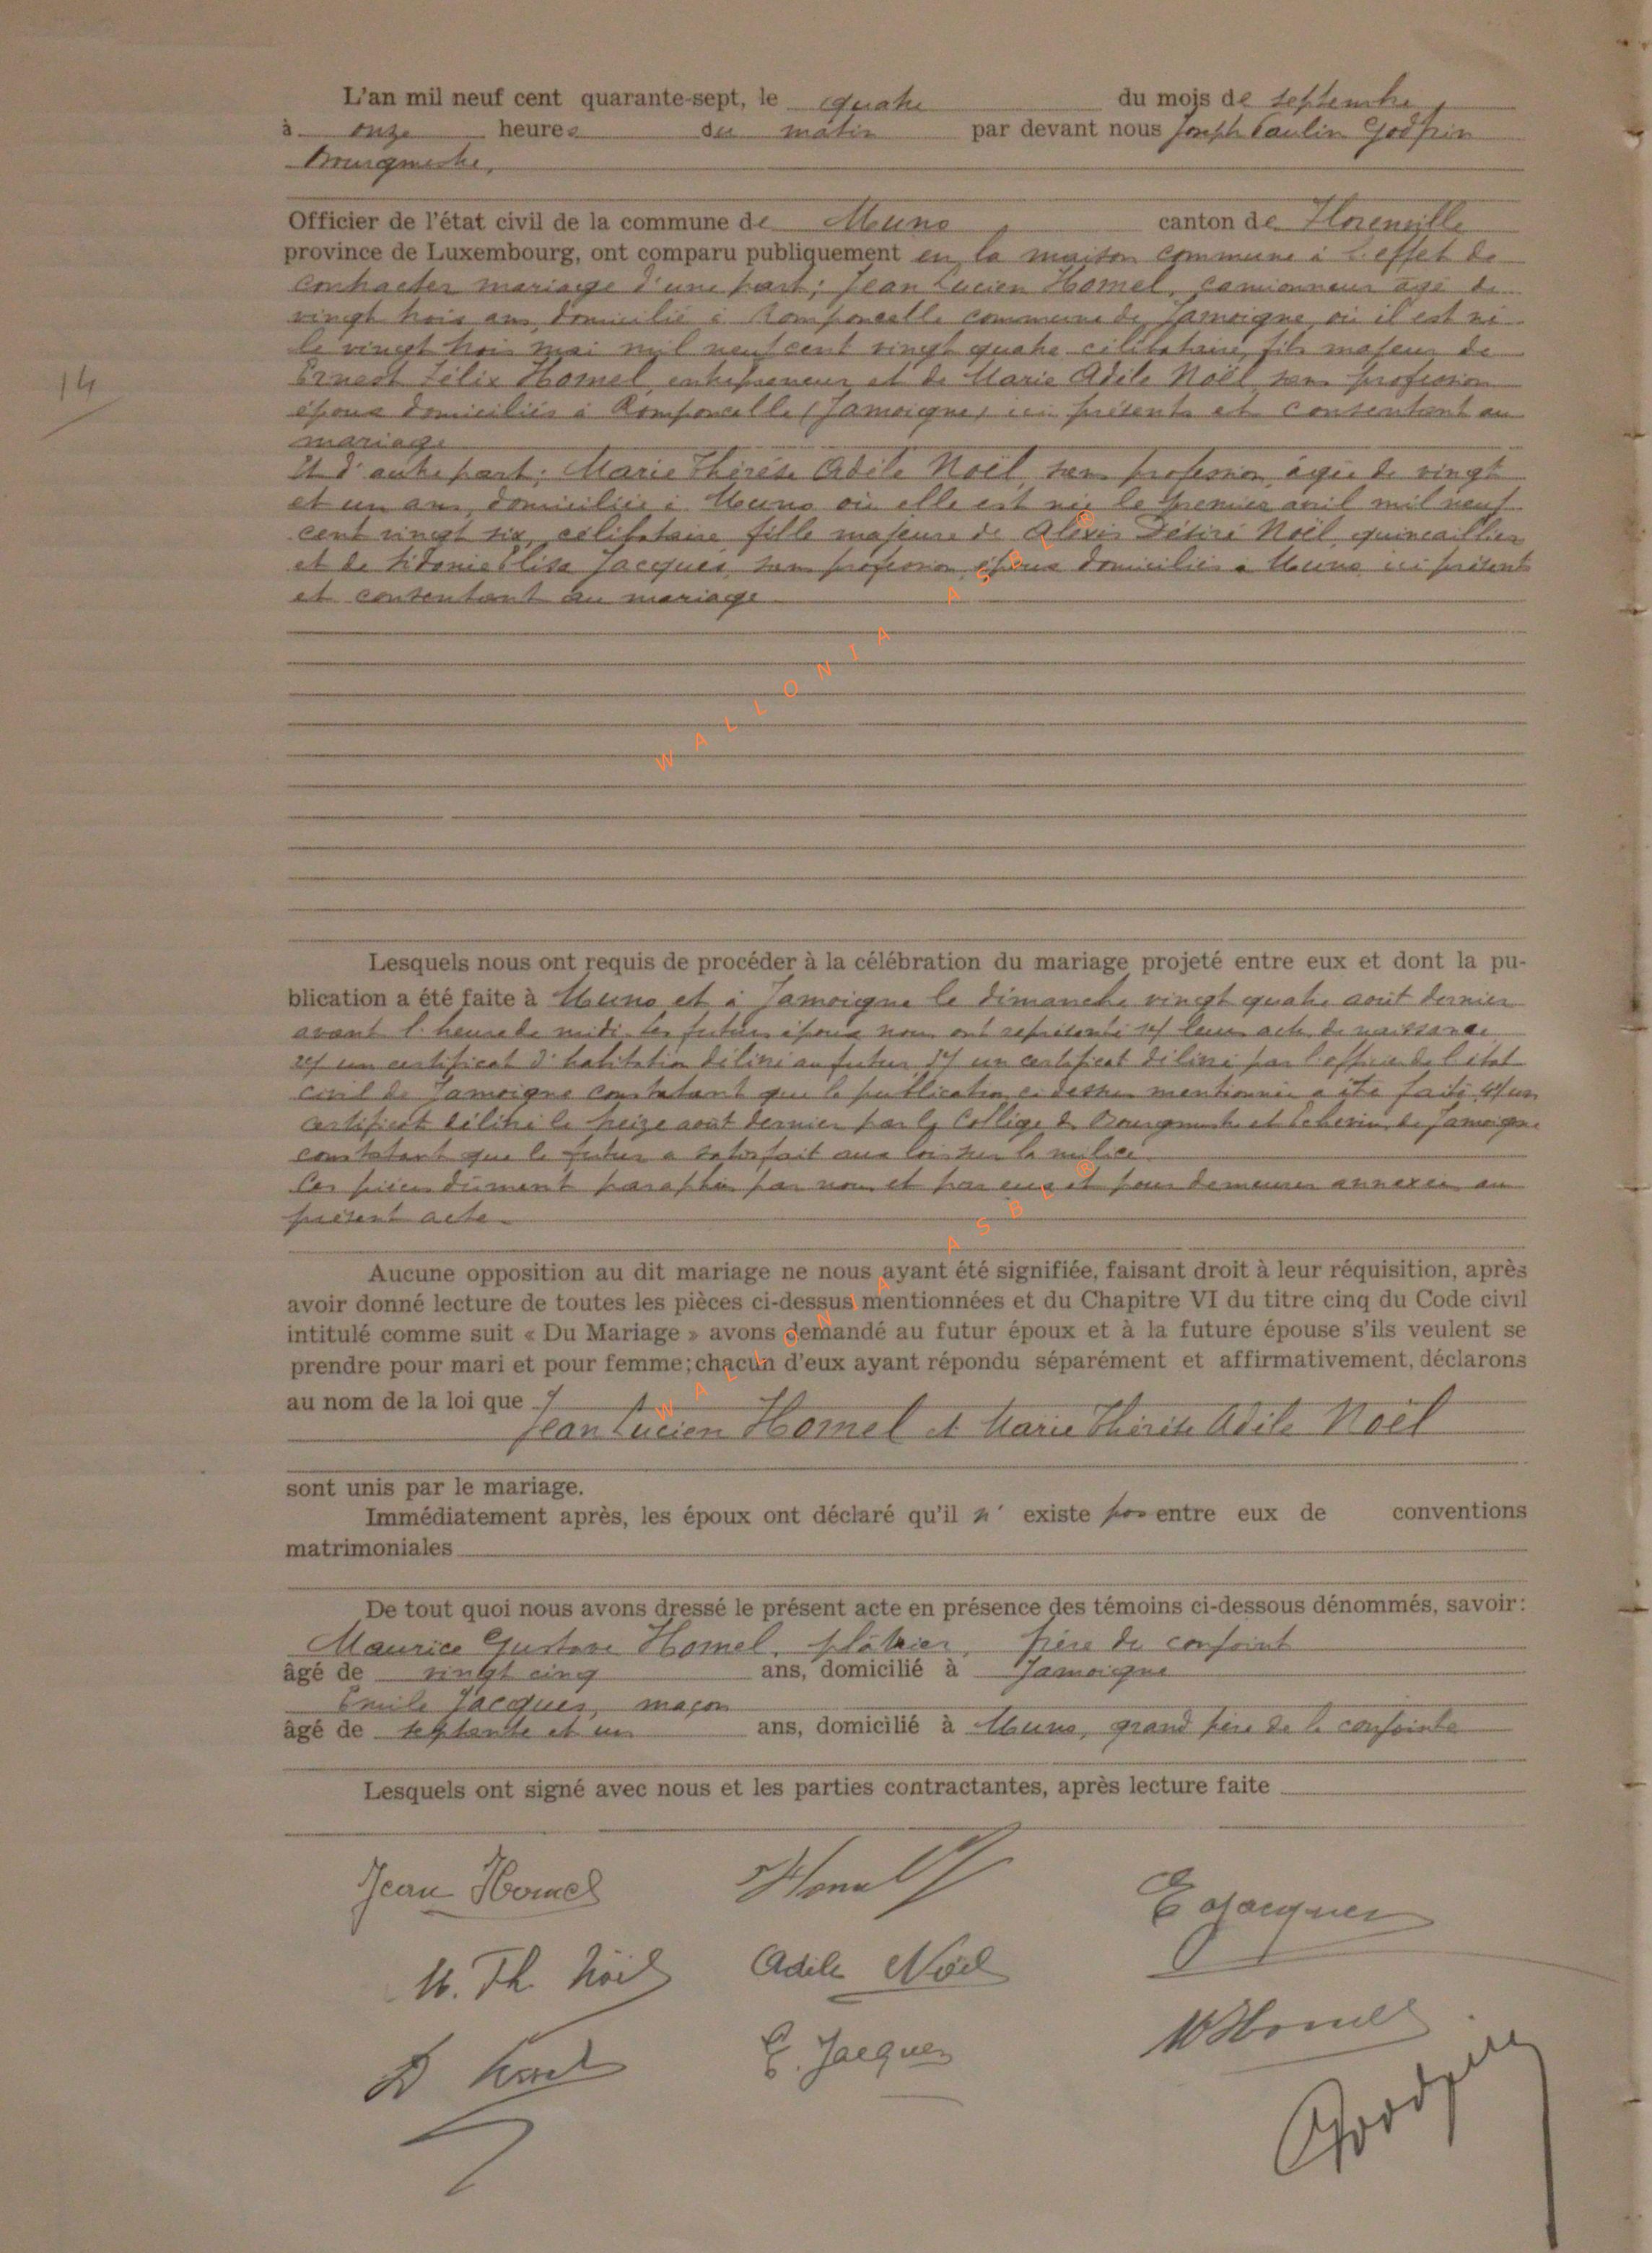 L'an mil neuf cent quarante-sept, le quatre du mois de septembre,
à onze heures du matin par devant nous Joseph Paulin Godfrin
Bourgmestre,
Officier de l'état civil de la commune de Muno canton de Florenville
province de Luxembourg, ont comparu publiquement en la maison commune à l'effet de
contracter mariage d'une part; Jean Lucien Homel, camionneur âgé de
vingt trois ans, domicilié à Romponcelle commune de Jamoigne, où il est né
le vingt trois mai mil neuf cent vingt quatre célibataire, fils majeur de
Ernest Félix Homel, entrepreneur et de Marie Adèle Noël, sans profession
époux domiciliés à Romponcelle (Jamoigne) ici présents et consentant au
mariage
Et d'autre part: Marie Thérèse Adèle Noël, sans profession, âgée de vingt
et un ans, domiciliée à Muno où elle est née le premier avril mil neuf
cent vingt six, célibataire fille majeure de Alexis Désiré Noël, quincaillier
et de Sidonie Elisa Jacques, sans profession, époux domiciliés à Muno, ici présents
et consentant au mariage
Lesquels nous ont requis de procéder à la célébration du mariage projeté entre eux et dont la pu-
blication a été faite à Muno et à Jamoigne le dimanche vingt quatre août dernier
avant l'heure de midi. Les futurs époux nous ont représenté 1°/ leur acte de naissance
2°/ un certificat d'habitation délivré au futur 3°/ un certificat délivré par l'officier de l'état
civil de Jamoigne constatant que la publication ci dessus mentionnée a été faite 4°/ un
certificat délivré le treize août dernier par le Collège de Bourgmestre et Echevins de Jamoigne
constatant que le futur a satisfait aux lois sur la milice.
Ces pièces dûment paraphées par nous et par eux et pour demeurer annexées au
présent acte
Aucune opposition au dit mariage ne nous ayant été signifiée, faisant droit à leur réquisition, après
avoir donné lecture de toutes les pièces ci-dessus mentionnées et du Chapitre VI du titre cinq du Code civil
intitulé comme suit « Du Mariage » avons demandé au futur époux et à la future épouse s'ils veulent se
prendre pour mari et pour femme; chacun d'eux ayant répondu séparément et affirmativement, déclarons
au nom de la loi que
Jean Lucien Homel et Marie Thérèse Adèle Noël
sont unis par le mariage.
Immédiatement après, les époux ont déclaré qu'il n' existe pas entre eux de conventions
matrimoniales
De tout quoi nous avons dressé le présent acte en présence des témoins ci-dessous dénommés, savoir:
Maurice Gustave Homel, plâtrier, frère du conjoint
âgé de vingt cinq ans, domicilié à Jamoigne
Emile Jacques, maçon
âgé de septante et un ans, domicilié à Muno, grand père de la conjointe
Lesquels ont signé avec nous et les parties contractantes, après lecture faite
14
Jean Homel Homel E Jacques
M. Th. Noël Adèle Noël M Homel
D Noël E. Jacques Godfrin
WALLONIA ASBL®
WALLONIA ASBL®